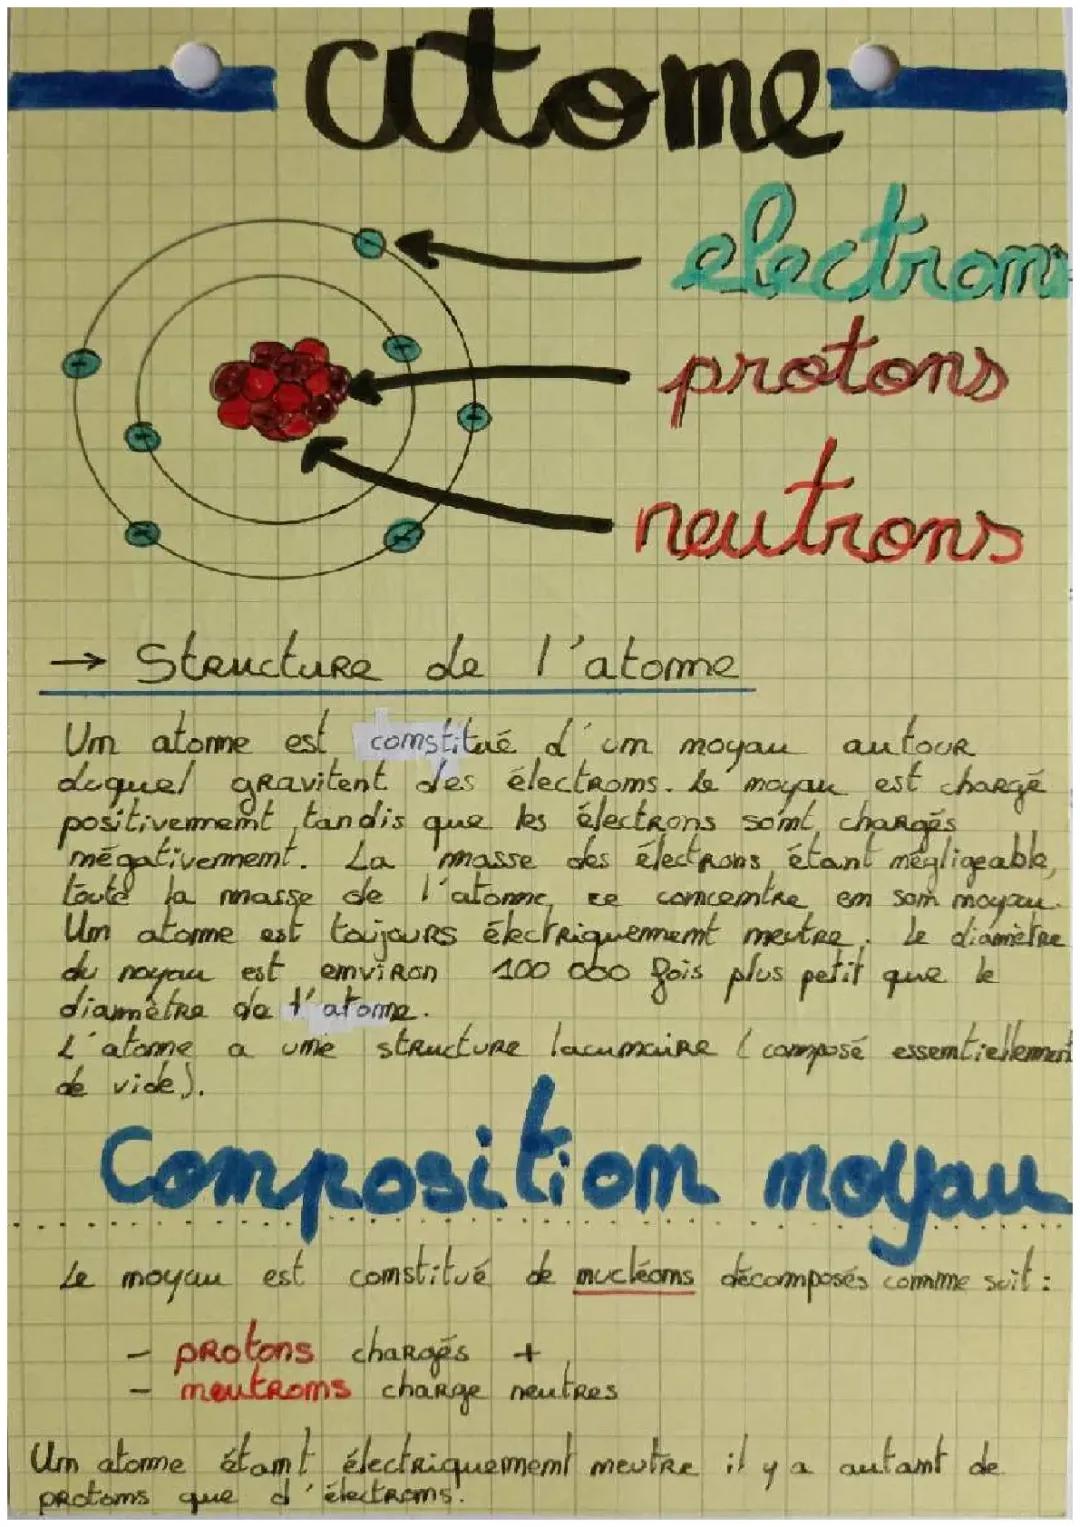 atome
electron
protons
neutrons
→ Structure de l'atome
Un atome est constitué d'un noyau autour
duquel gravitent des électrons. Le noyau est chargé
positivement, tandis que les électrons sont chargés
négativement. La masse des électrons étant négligeable,
toute la masse de l'atome ce concentre en son noyau.
Un atome est toujours électriquement neutre. Le diamètre
du noyau est environ 100 000 fois plus petit que le
diamètre de l'atome.
L'atome a une structure lacunaire (composé essentiellement
de vide).
Composition noyau
Le noyau est constitué de nucléons décomposés comme suit :
- protons chargés +
- neutrons charge neutres
Un atome étant électriquement neutre il y a autant de
protons que d'électrons.